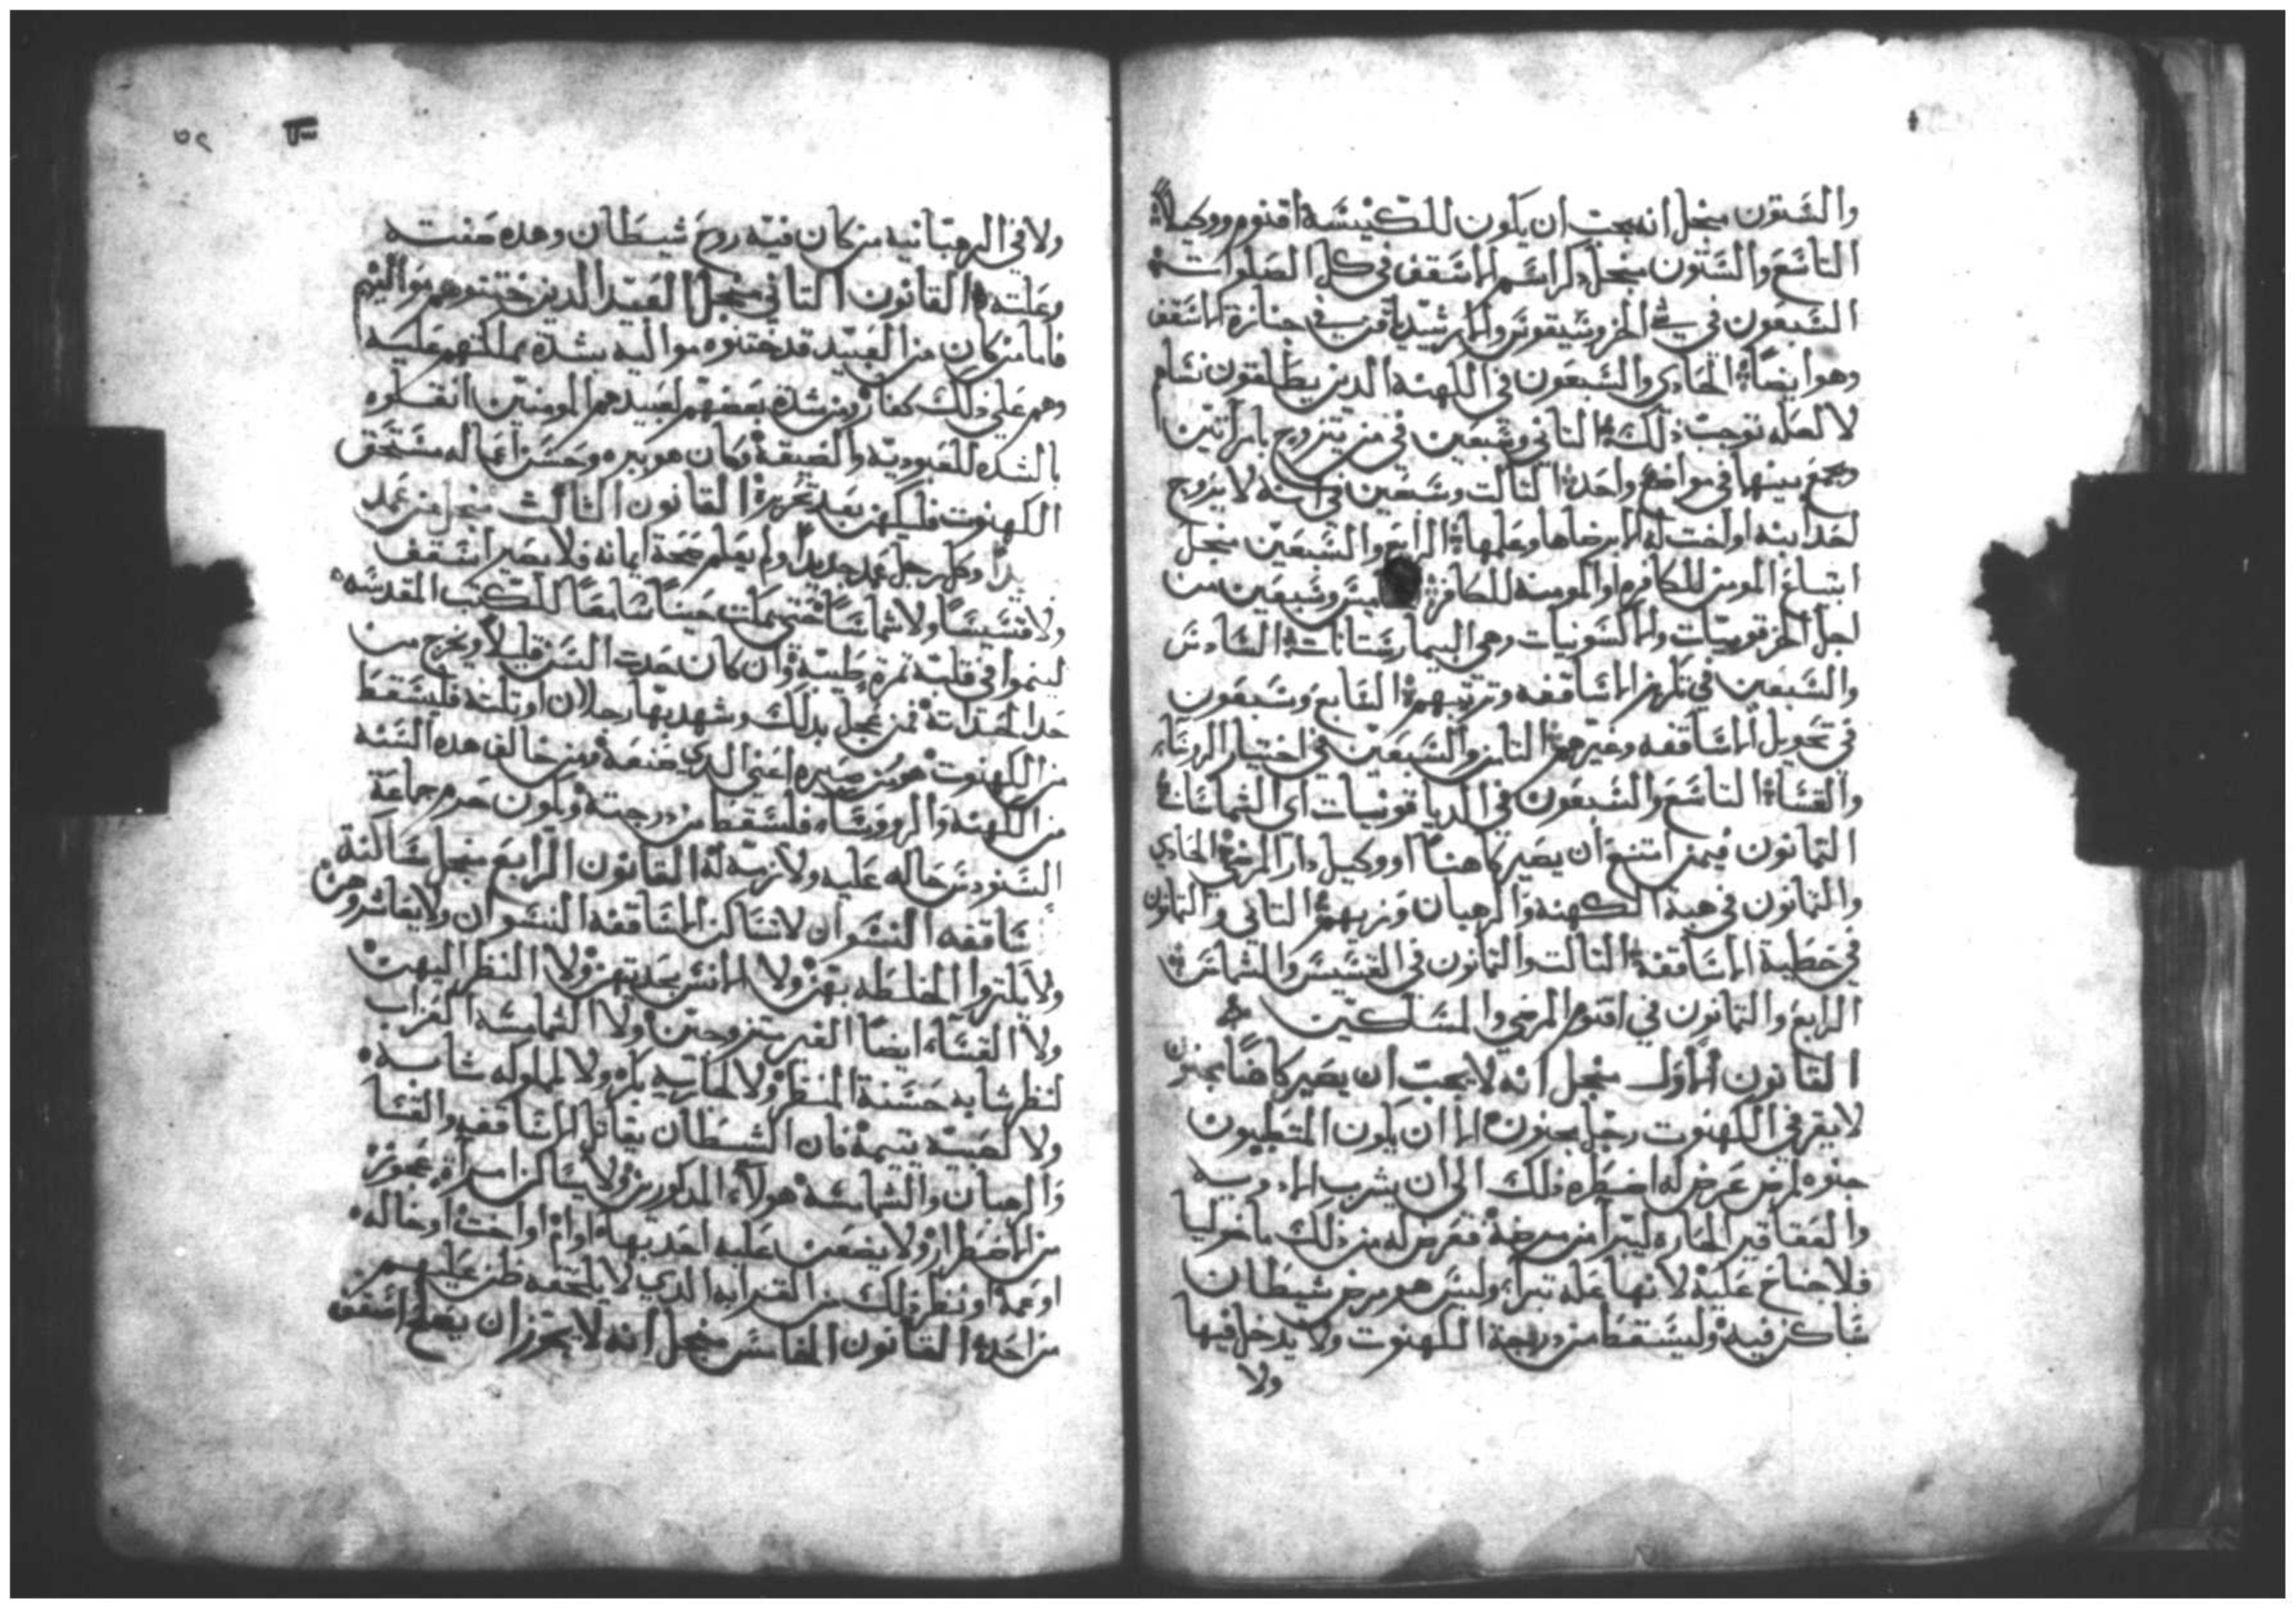 والستون منجل انه يجب ان يكون للكنيسة اقنوم ووكيلاً
التاسع والستون منجل ذكر اسم الاسقف في كل الصلوات
السبعون في الخروسيقوس والارشيدياقن في جنازة الاسقف
وهو ايضاً الحادي والسبعون في الكهنة الدين يطلقون نساهم
لا لعله توجب ذلك الثاني وسبعين في من يتزوج بامراتين
وجمع بينها في مواضع واحدة الثالت وسبعين في انه لا يزوج
احد ابنه او اخت له الا برضاها وعلمها الرابع والسبعين منجل
ابتياع المومن للكافره او المومنة للكافر وسبعين من
اجل والاكسونيات وهي البيمارستانات السادس
والسبعين في الاساقفه وترتيبهم السابع وسبعون
في تحويل الاساقفه وغيرهم الثامن والسبعين في اختيار الروسا
والقسا التاسع والسبعون في الدياقونيات اي الشماسات
الثمانون فيمن امتنع ان يصير كاهناً او وكيل دار المرضى الحادي
والثمانون في هبة الكهنة والرهبان وزيهم الثاني والثمانون
في خطية الاساقفة الثالت والثمانون في القسيس والشماس
الرابع والثمانون في اقنوم المرضى والمساكين
القانون الاول منجل انه لا يجب ان يصير كاهناً مجنون
لا يقرفي الكهنوت رجل مجنون الا ان يكون المتطببون
جنوه لمرض عرض له اضطره ذلك الى ان يشرب الادويه
والعقاقير الحاره ليبرا من مرضه فعرض له من ذلك ماخوليا
فلا جناح عليه لانها عله تبرا وليس هو مرض شيطان
ساكن فيه وليسقط من درجة الكهنوت ولا يدخل فيها
ولا
٢٥
ولا في الرهبانيه من كان فيه روح شيطان وهده صفته
وعلته القانون الثاني منجل العبيد الدين ختنوهم مواليهم
فاما من كان من العبيد قد ختنوه مواليه بشدة مملكتهم عليه
وهم على ذلك كفار ومن شدة بعضهم لعبيدهم المومنين انقلوه
بالشده للعبودية والضيقة وكان هو بيره وحسن اعماله مستحق
الكهنوت فليكهن بعد تحريره القانون الثالث منجل من عمد
وكل رجل عمد جديداً ولم يعلم صحة ايمانه فلا يصير اسقف
ولا قسيساً ولا شماساً حتى يمكث حيناً سامعاً للكتب المقدسه
لينموا في قلبه ثمره طيبة وان كان حدث السن قليلاً ويخرج من
حد الحداثة فمن عجل بدلك وشهد بها رجلان او ثلثة فليسقط
من الكهنوت هو ومن صيره اعني الدي صنعه ومن خالف هده السنه
من الكهنة والروسا فليسقط من درجته ويكون حرم جماعة
السنودس حاله عليه ولازمه له القانون الرابع منجل ساكنة
ساقفه النسوان لا تساكن الاساقفه النسوان ولا يعاشروهن
ولا يكتروا الخلطه بهن ولا الانس بحديتهن ولا النظر اليهن
ولا القساء ايضاً الغير متزوجين ولا الشمامسه العزاب
لنظر شابه حسنة المنظر ولا لجاريه بكر ولا لمملوكه شابه
ولا لصبيه يتيمة فان الشيطان يقاتل الاساقفه والقسا
والرهبان والشمامسه هولاء المدكورين ولا يساكن امراة عجوز
من الاضطرار ولا يضعن عليه احد بها او ام او اخت او خاله
او عمة او نظر ذلك من القرابه الدي لا يلحقه ظن عليهم
من احد القانون الخامس منجل انه لا يجوز ان يضع اسقف